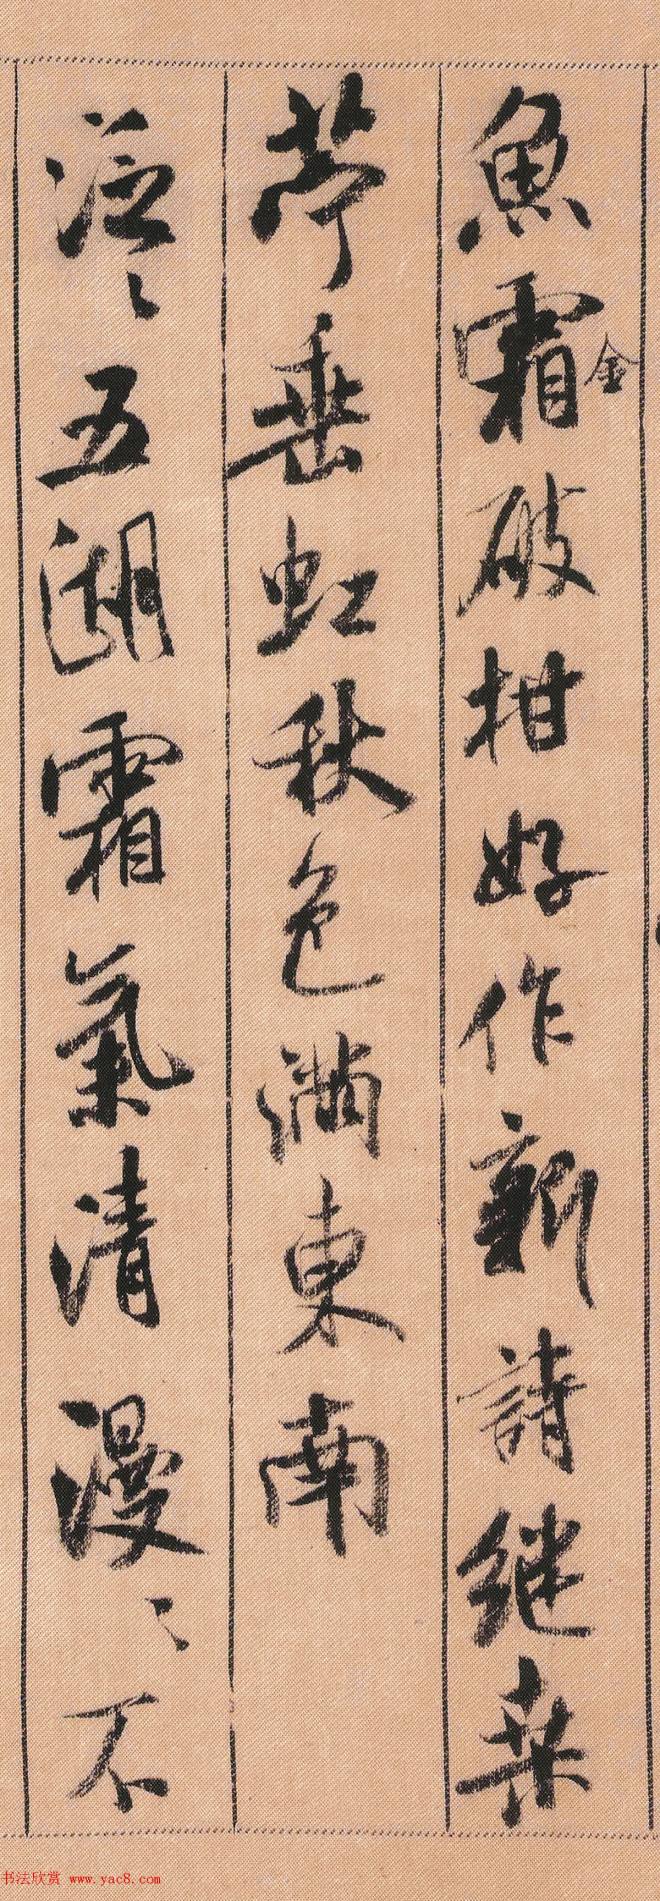 魚霜破柑好作新詩継桒
金
苧垂虹秋色滿東南
泛〻五湖霜氣清漫〻不
书法欣赏 www.yac8.com